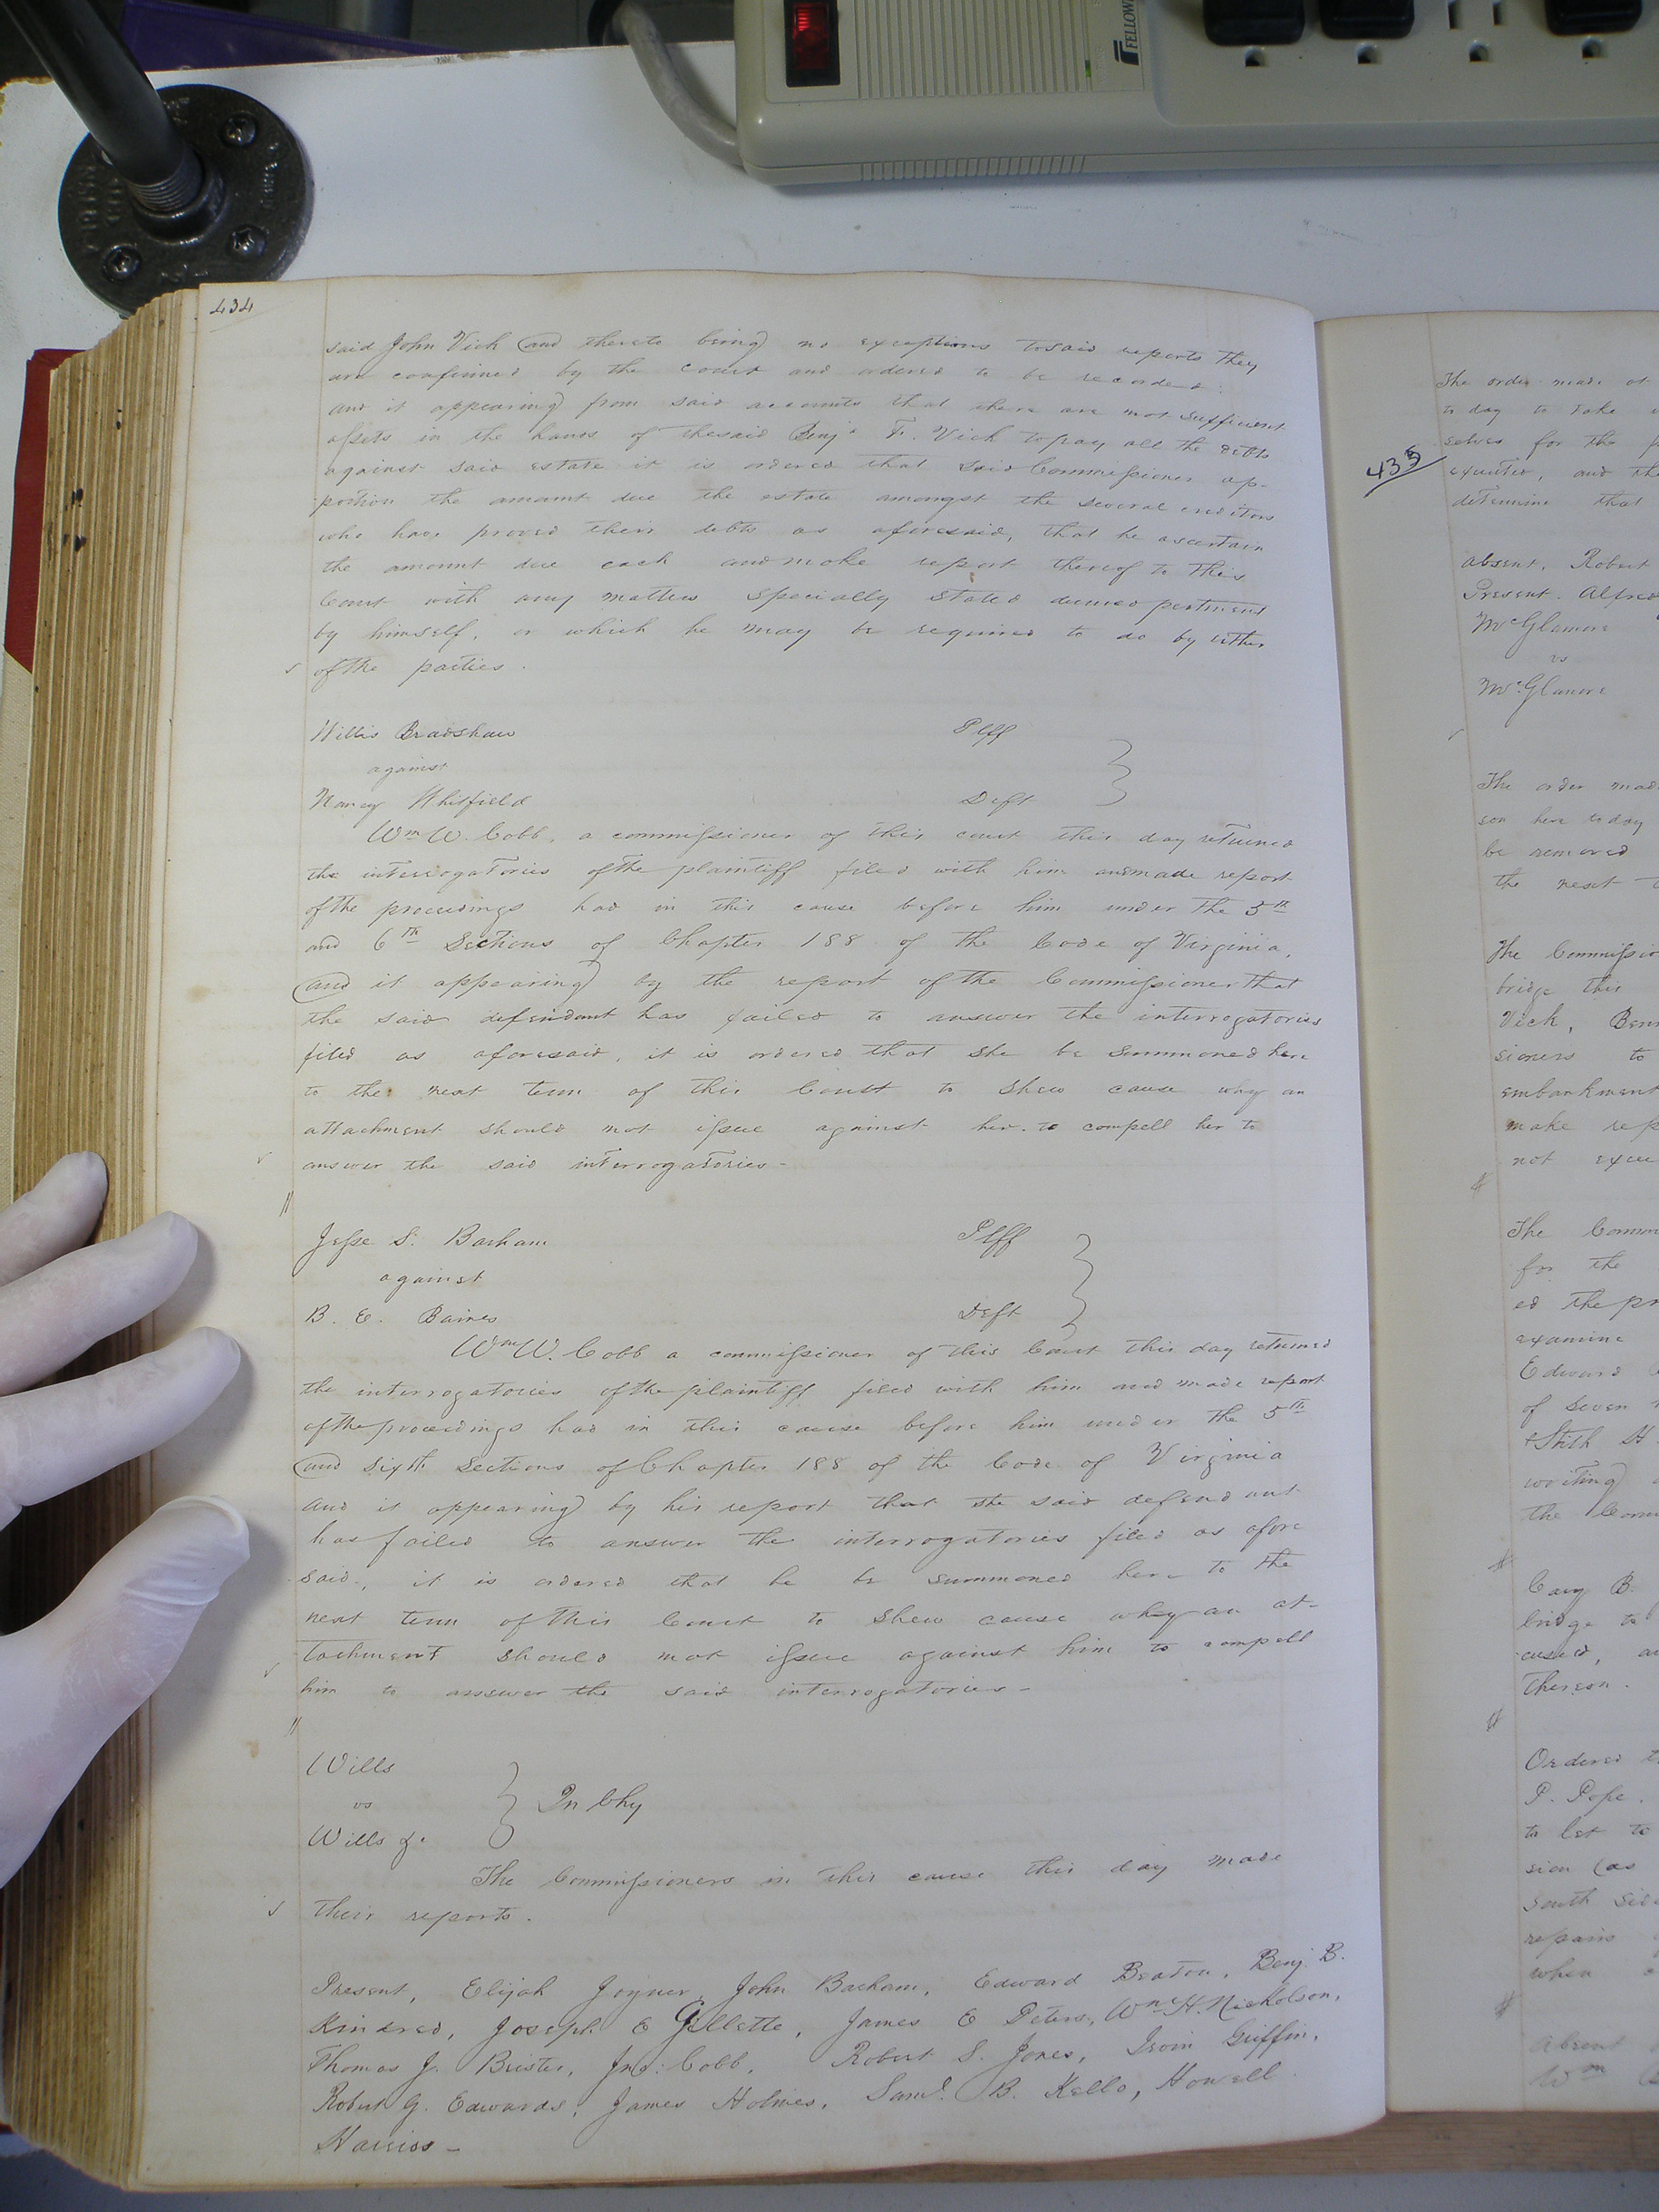 FELLOW
434
said John Vick and thereto being no exceptions to said reports they
are confirmed by the court and ordered to be recorded.
and it appearing from said accounts that there are not sufficient
assets in the hands of the said Benja. F. Vick to pay all the debts
against said estate it is ordered that said Commissioner ap-
portion the amount due the estate amongst the several creditors
who have proved their debts as aforesaid, that he ascertain
the amount due each and make report thereof to this
Court with any matters specially stated deemed pertinent
by himself, or which he may be required to do by either
of the parties.
Willis Bradshaw Plff
against
Nancy Whitfield Deft
Wm W. Cobb, a commissioner of this court this day returned
the interrogatories of the plaintiff filed with him and made report
of the proceedings had in this cause before him under the 5th
and 6th Sections of Chapter 188 of the Code of Virginia,
and it appearing by the report of the Commissioner that
the said defendant has failed to answer the interrogatories
filed as aforesaid, it is ordered that she be summoned here
to the next term of this Court to shew cause why an
attachment should not issue against her to compell her to
answer the said interrogatories -
Jesse S. Barham Plff
against
B. E. Baines Deft
Wm W. Cobb a commissioner of this Court this day returned
the interrogatories of the plaintiff filed with him and made report
of the proceedings had in this cause before him under the 5th
and sixth sections of Chapter 188 of the Code of Virginia
and it appearing by his report that the said defendant
has failed to answer the interrogatories filed as afore
said, it is ordered that he be summoned here to the
next term of this Court to shew cause why an at-
tachment should not issue against him to compell
him to answer the said interrogatories -
Wills
vs In Chy
Wills &c
The Commissioners in this cause this day made
their reports.
Present, Elijah Joyner, John Barham, Edward Beaton, Benj. B.
Kindred, Joseph E Gillette, James E Peters, Wm H. Nicholson,
Thomas J. Brister, Jno. Cobb, Robert S. Jones, Irvin Griffin,
Robert G. Edwards, James Holmes, Saml. B. Kello, Howell
Harriss -
435
The order made at
to day to take
selves for the
executed, and the
determine that
absent, Robert
Present. Alfred
McGlamore
vs
McGlamore
The order mad
son here today
be removed
the next
The Commissio
bridge this
Vick, Ben
sioners to
embankment
make rep
not excee
The Comm
for the
ed the pr
examine
Edward
of seven
& Stith H
writing
the Com
Cary B.
bridge to
cused, a
thereon.
Ordered t
P. Pope.
to let to
sion (as
South Sid
repairs
when
Absent
Wm